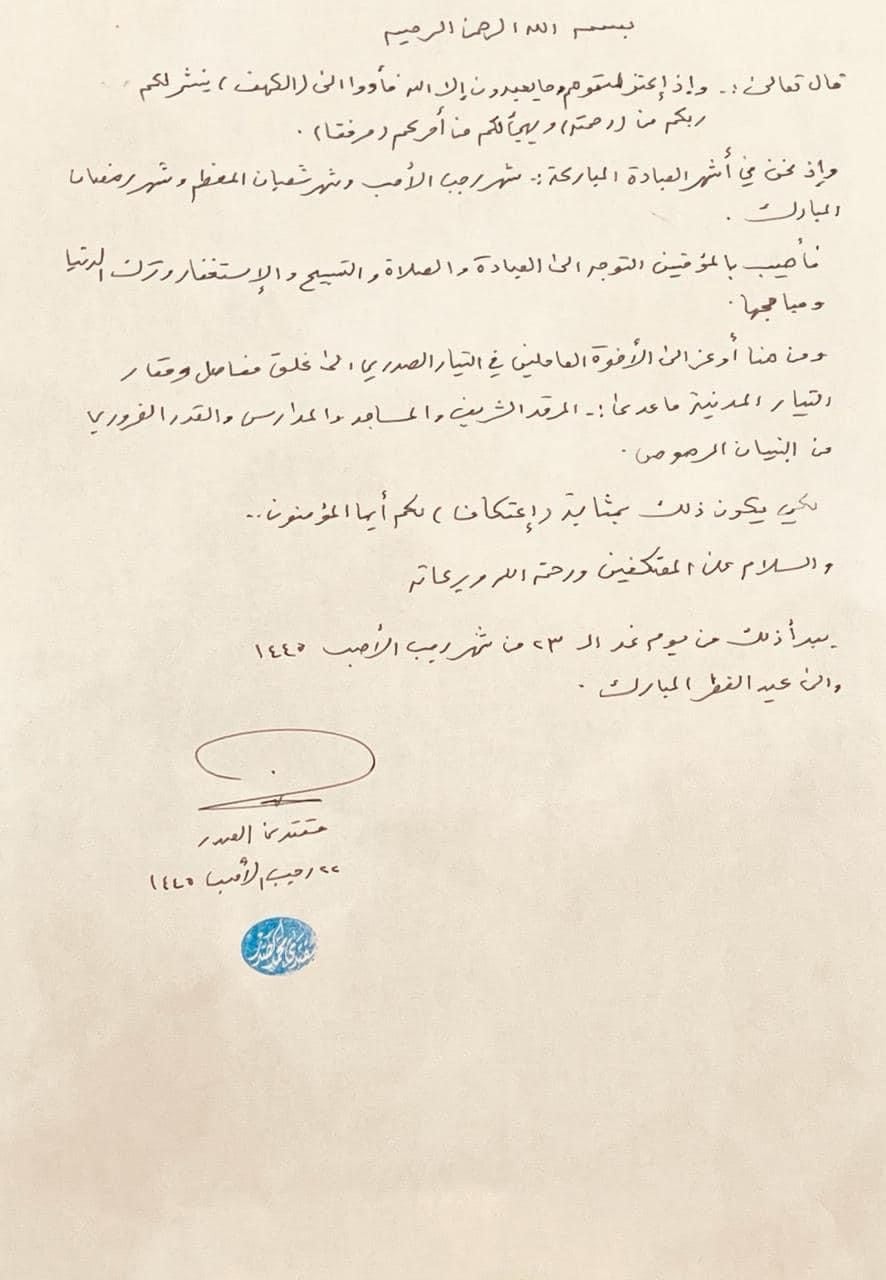 بسمه الله الرحمن الرحيم
قال تعالى :ـ وإذ إعتزلتموهم وما يعبدون إلا الله فأووا الى (الكهف) ينشر لكم
ربكم من (رحمته) ويهيأ لكم من أمركم (مرفقا).
وإذ نحن في أشهر العبادة المباركة :ـ شهر رجب الأصب وشهر شعبان المعظم وشهر رمضان
المبارك .
فأهيب بالمؤمنين التوجه الى العبادة والصلاة والتسبيح والإستغفار وترك الدنيا
ومباهجها .
ومن هنا أوعز الى الأخوة العاملين في التيار الصدري الى غلق مفاصل ومقار
التيار المدنية ما عدى :ـ المرقد الشريف والمساجد والمدارس والقدر الضروري
من البنيان المرصوص .
لكي يكون ذلك بمثابة (إعتكاف) لكم أيها المؤمنون ..
والسلام على المعتكفين ورحمة الله وبركاته
يبدأ ذلك من يوم غد الـ ٢٣ من شهر رجب الأصب ١٤٤٥
والى عيد الفطر المبارك .
مقتدى الصدر
٢٢ رجب الأصب ١٤٤٥